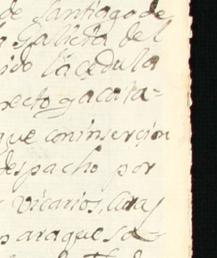 de Santiago de
Galicia del
ido la cedula
recto y acata-
que con insercion
despacho por
vicarios, Cura
paraque sa-